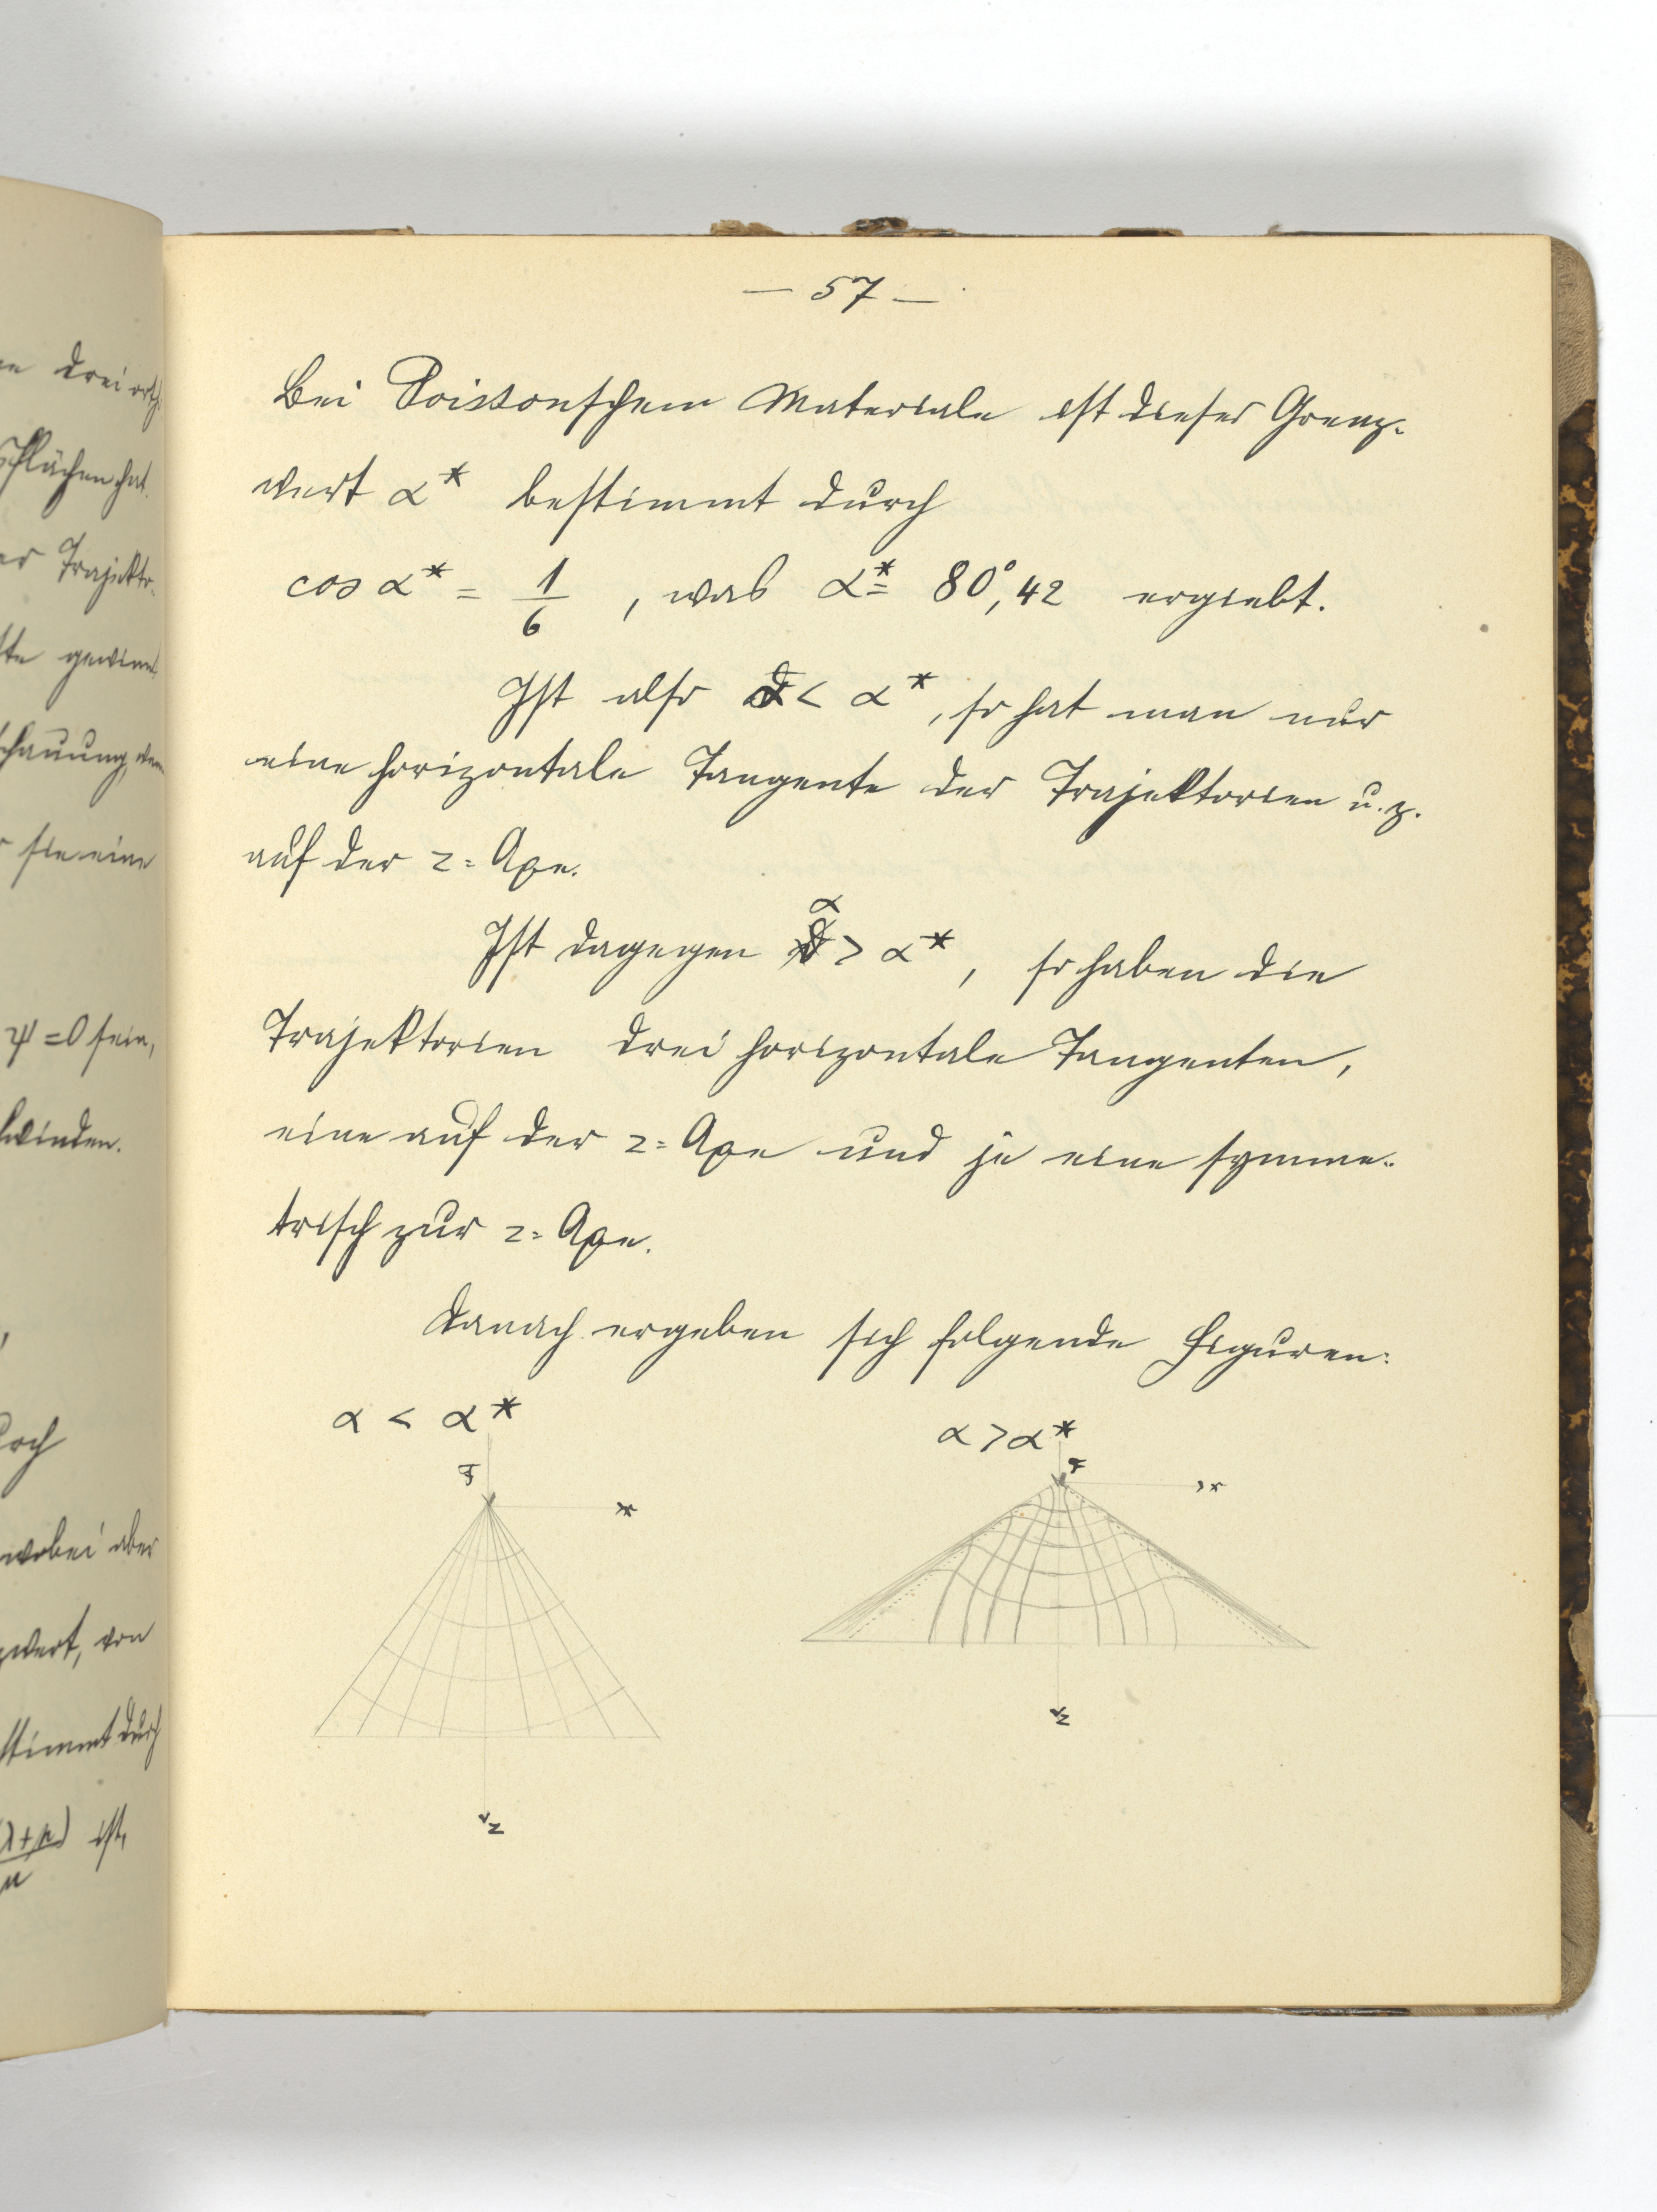 n drei orth.
sflächen hat.
er Trajekto-
te gewinnt
schauung, wenn
r sie eine
ψ = 0 sein,
hwinden.
urch
wobei aber
zwert, von
stimmt durch
(λ+μ) ist,
μ
— 57 —
Bei Poissonschem Materiale ist dieser Grenz-
wert α* bestimmt durch
cos α* = 1/6, was α* = 80°,42 ergiebt.
Ist also α < α*, so hat man nur
eine horizontale Tangente der Trajektorien u. z.
auf der z-Axe.
Ist dagegen α > α*, so haben die
Trajektorien drei horizontale Tangenten,
eine auf der z-Axe und je eine symme-
trisch zur z-Axe.
Danach ergeben sich folgende Figuren:
α < α*
α > α*
x
x
z
z